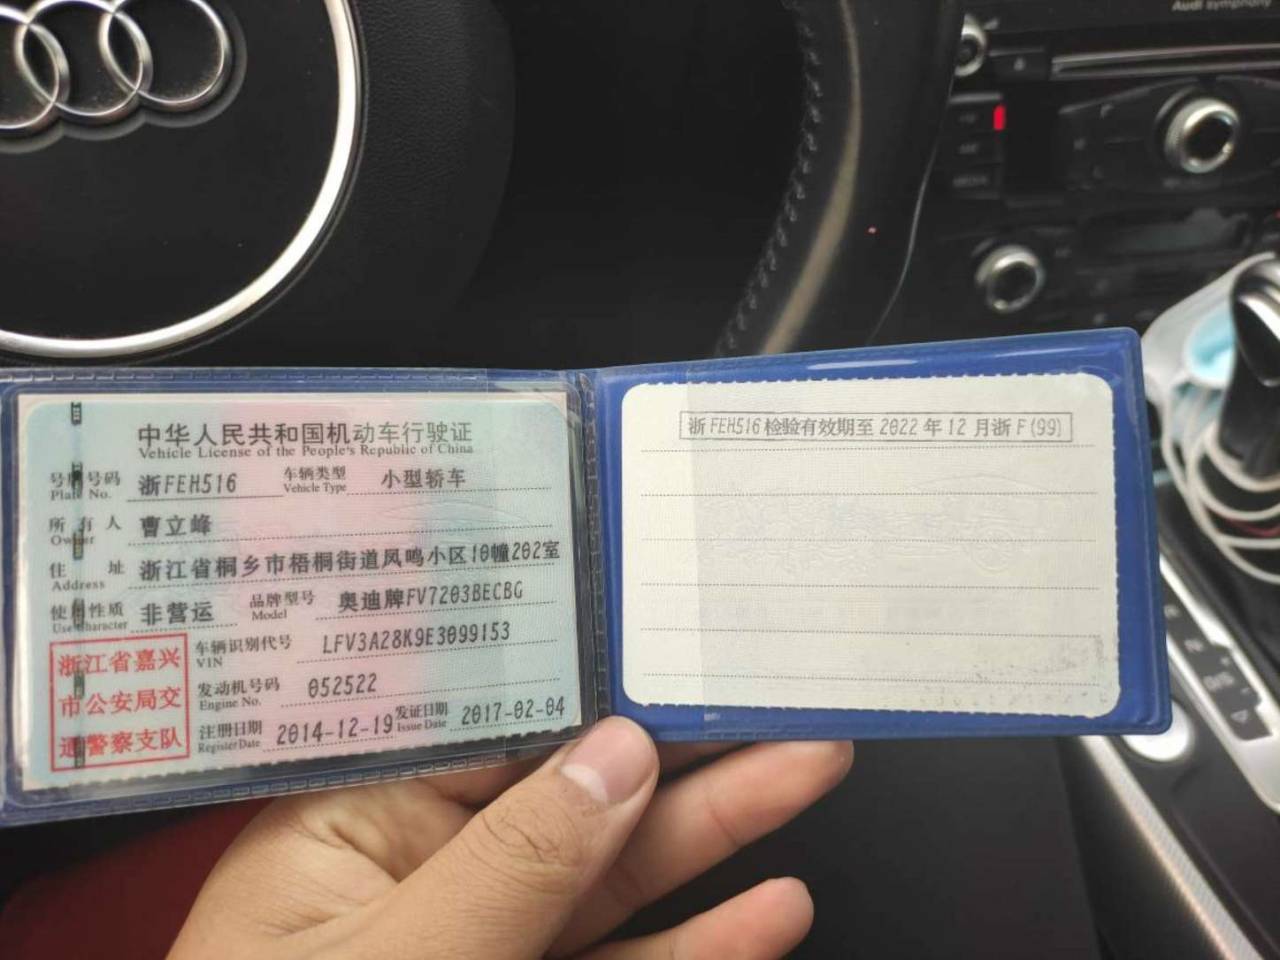 Audi symphony
中华人民共和国机动车行驶证
Vehicle License of the People's Republic of China
号牌号码 浙FEH516 车辆类型 小型轿车
Plate No. Vehicle Type
所有人 曹立峰
Owner
住址 浙江省桐乡市梧桐街道凤鸣小区10幢202室
Address
使用性质 非营运 品牌型号 奥迪牌FV7203BECBG
Use Character Model
浙江省嘉兴
市公安局交
通警察支队
车辆识别代号 LFV3A28K9E3099153
VIN
发动机号码 052522
Engine No.
注册日期 2014-12-19 发证日期 2017-02-04
Register Date Issue Date
浙FEH516检验有效期至2022年12月浙F(99)